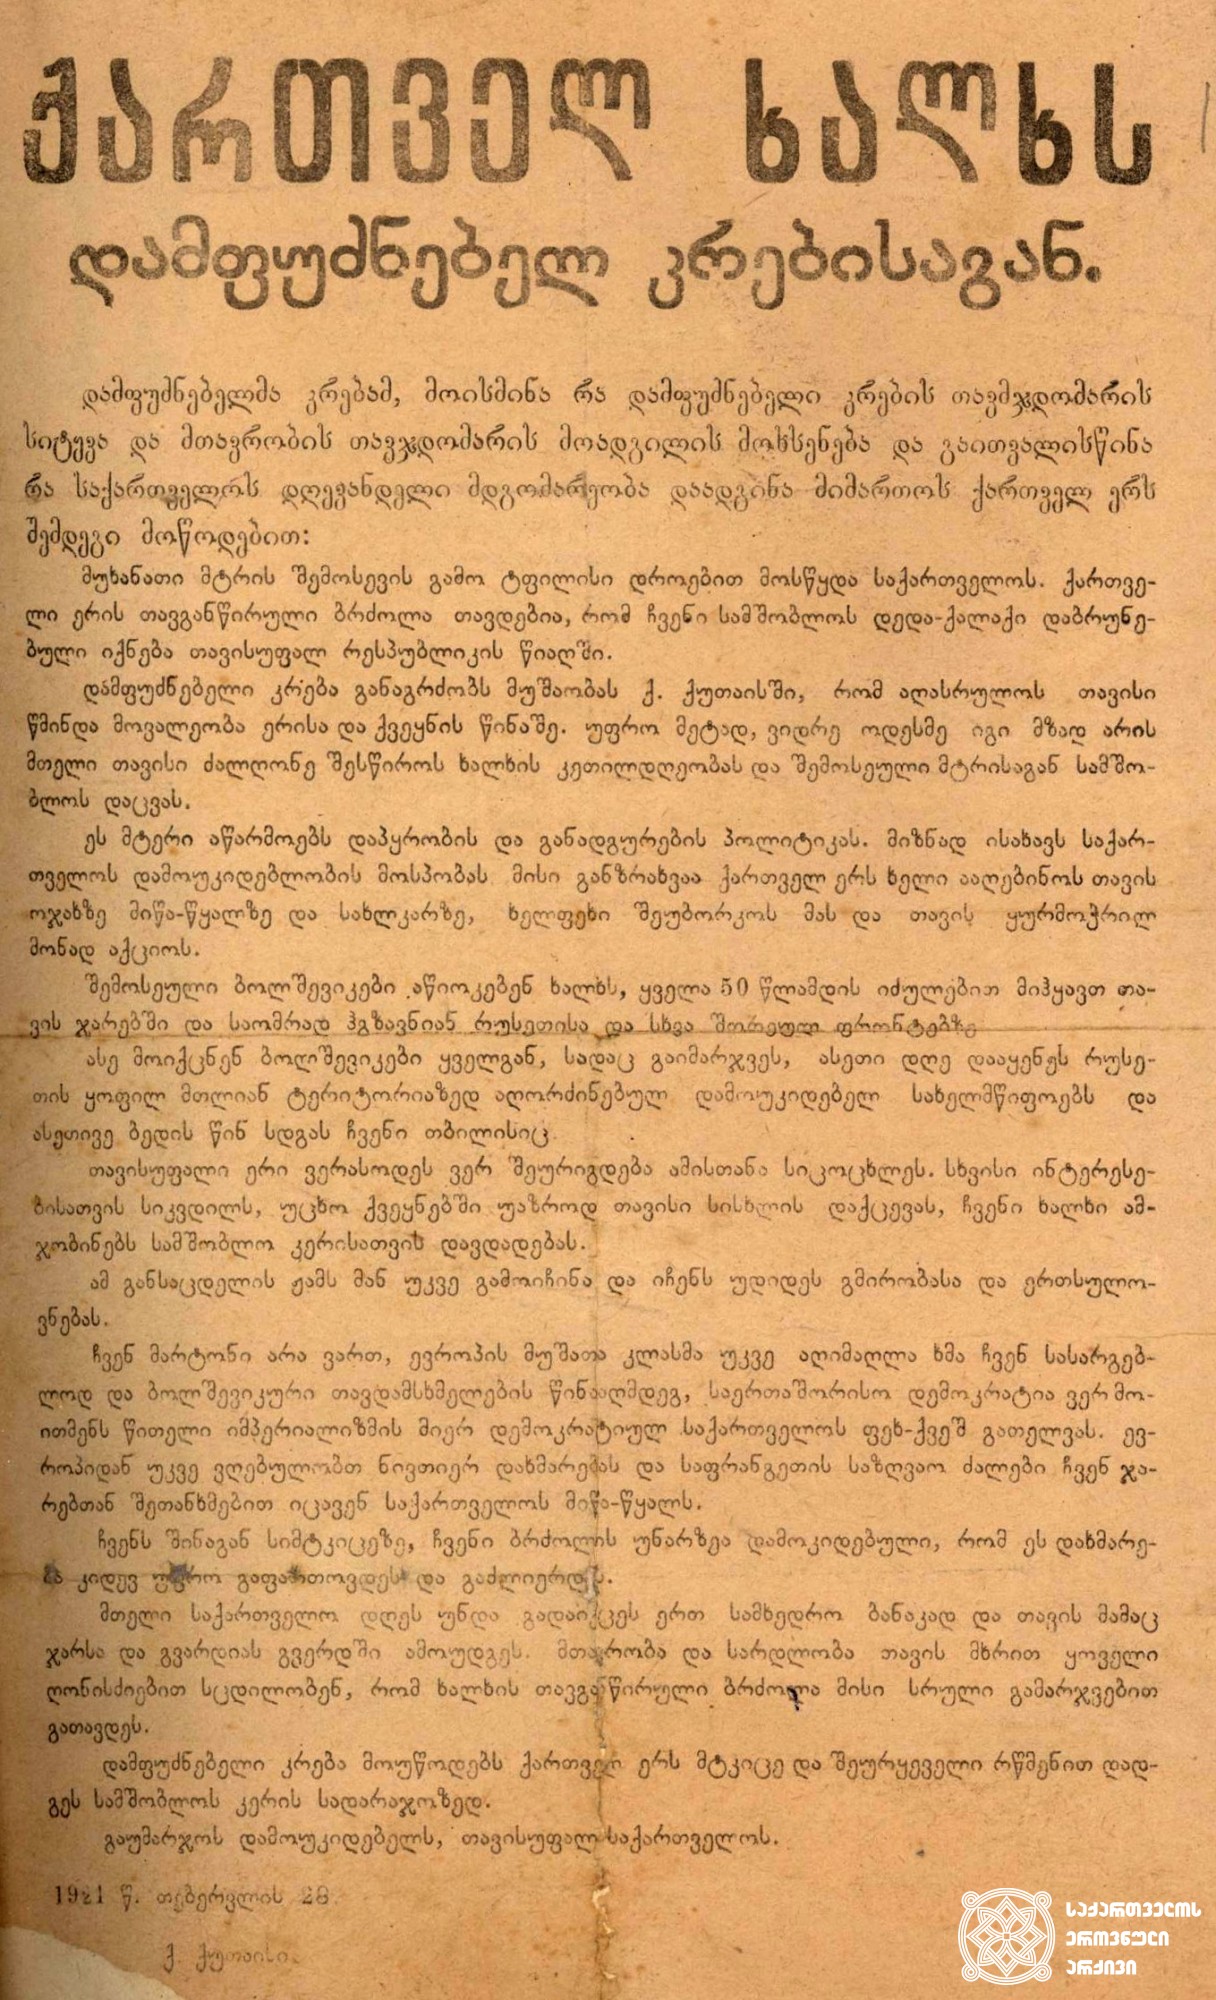 ქართველ ხალხს
დამფუძნებელ კრებისაგან.
დამფუძნებელმა კრებამ, მოისმინა რა დამფუძნებელი კრების თავმჯდომარის
სიტყვა და მთავრობის თავჯდომარის მოადგილის მოხსენება და გაითვალისწინა
რა საქართველოს დღევანდელი მდგომარეობა დაადგინა მიმართოს ქართველ ერს
შემდეგი მოწოდებით:
მუხანათი მტრის შემოსევის გამო ტფილისი დროებით მოსწყდა საქართველოს. ქართვე-
ლი ერის თავგანწირული ბრძოლა თავდებია, რომ ჩვენი სამშობლოს დედა-ქალაქი დაბრუნე-
ბული იქნება თავისუფალ რესპუბლიკის წიაღში.
დამფუძნებელი კრება განაგრძობს მუშაობას ქ. ქუთაისში, რომ აღასრულოს თავისი
წმინდა მოვალეობა ერისა და ქვეყნის წინაშე. უფრო მეტად, ვიდრე ოდესმე იგი მზად არის
მთელი თავისი ძალღონე შესწიროს ხალხის კეთილდღეობას და შემოსეული მტრისაგან სამშო-
ბლოს დაცვას.
ეს მტერი აწარმოებს დაპყრობის და განადგურების პოლიტიკას. მიზნად ისახავს საქარ-
თველოს დამოუკიდებლობის მოსპობას მისი განზრახვაა ქართველ ერს ხელი ააღებინოს თავის
ოჯახზე მიწა-წყალზე და სახლკარზე, ხელფეხი შეუბორკოს მას და თავის ყურმოჭრილ
მონად აქციოს.
შემოსეული ბოლშევიკები აწიოკებენ ხალხს, ყველა 50 წლამდის იძულებით მიჰყავთ თა-
ვის ჯარებში და საომრად ჰგზავნიან რუსეთისა და სხვა შორეულ ფრონტებზე
ასე მოიქცნენ ბოლშევიკები ყველგან, სადაც გაიმარჯვეს, ასეთი დღე დააყენეს რუსე-
თის ყოფილ მთლიან ტერიტორიაზედ აღორძინებულ დამოუკიდებელ სახელმწიფოებს და
ასეთივე ბედის წინ სდგას ჩვენი თბილისიც.
თავისუფალი ერი ვერასოდეს ვერ შეურიგდება ამისთანა სიცოცხლეს. სხვისი ინტერესე-
ბისათვის სიკვდილს, უცხო ქვეყნებში უაზროდ თავისი სისხლის დაქცევას, ჩვენი ხალხი ამ-
ჯობინებს სამშობლო კერისათვის დავდადებას.
ამ განსაცდელის ჟამს მან უკვე გამოიჩინა და იჩენს უდიდეს გმირობასა და ერთსულო-
ვნებას.
ჩვენ მარტონი არა ვართ, ევროპის მუშათა კლასმა უკვე აღიმაღლა ხმა ჩვენ სასარგებ-
ლოდ და ბოლშევიკური თავდამსხმელების წინააღმდეგ, საერთაშორისო დემოკრატია ვერ მო-
ითმენს წითელი იმპერიალიზმის მიერ დემოკრატიულ საქართველოს ფეხ-ქვეშ გათელვას. ევ-
როპიდან უკვე ვღებულობთ ნივთიერ დახმარებას და საფრანგეთის საზღვაო ძალები ჩვენ ჯა-
რებთან შეთანხმებით იცავენ საქართველოს მიწა-წყალს.
ჩვენს შინაგან სიმტკიცეზე, ჩვენი ბრძოლის უნარზეა დამოკიდებული, რომ ეს დახმარე-
ბა კიდევ უფრო გაფართოვდეს და გაძლიერდეს.
მთელი საქართველო დღეს უნდა გადაიქცეს ერთ სამხედრო ბანაკად და თავის მამაც
ჯარსა და გვარდიას გვერდში ამოუდგეს. მთავრობა და სარდლობა თავის მხრით ყოველი
ღონისძიებით სცდილობენ, რომ ხალხის თავგანწირული ბრძოლა მისი სრული გამარჯვებით
გათავდეს.
დამფუძნებელი კრება მოუწოდებს ქართველ ერს მტკიცე და შეურყეველი რწმენით დად-
გეს სამშობლოს კერის სადარაჯოზედ.
გაუმარჯოს დამოუკიდებელს, თავისუფალ საქართველოს.
1921 წ. თებერვლის 28.
ქ. ქუთაისი.
საქართველოს
ეროვნული
არქივი